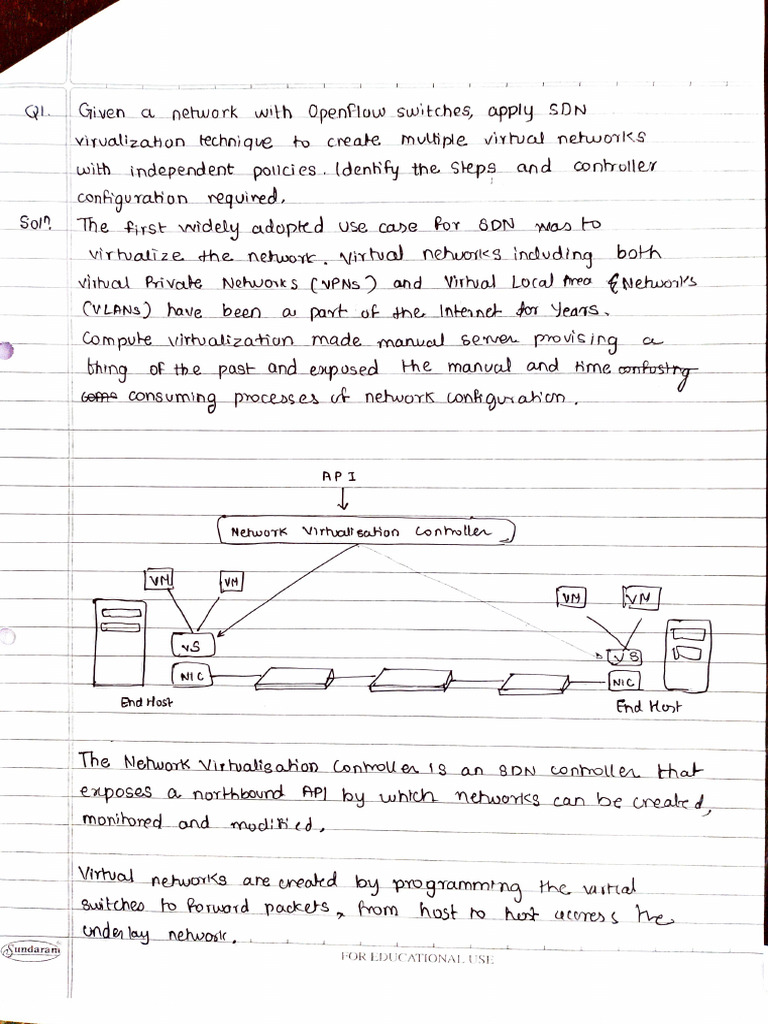 Q1. Given a network with Openflow switches, apply SDN
virualization technique to create multiple virtual networks
with independent policies. Identify the steps and controller
configuration required.
Soln. The first widely adopted use case for SDN was to
virtualize the network. Virtual networks including both
virtual Private Networks (VPNs) and Virtual Local Area Networks
(VLANs) have been a part of the Internet for years.
Compute virtualization made manual server provising a
thing of the past and exposed the manual and time
consuming processes of network configuration.
API
Network Virtualisation Controller
VM VM VM VM
VS VS
NIC NIC
End Host End Host
The Network Virtualisation Controller is an SDN controller that
exposes a northbound API by which networks can be created,
monitored and modified.
Virtual networks are created by programming the virtual
switches to forward packets, from host to host access the
underlay network.
Sundaram
FOR EDUCATIONAL USE